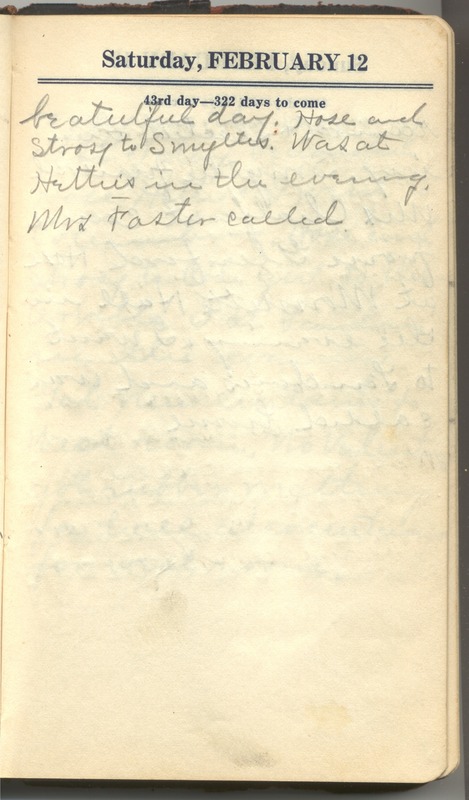 Saturday, FEBRUARY 12
43rd day—322 days to come
beatuilful day. Hose and
to Smyltis. Was at
Hetties in the evening.
Mrs Foster called.